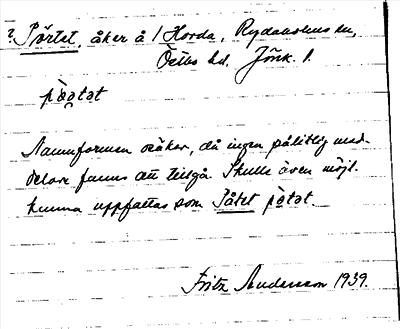 ? Pörtet, åker å 1 Horda, Rydaholms sn,
Östbo hd. Jönk. l.
pòatat
Namnformen osäker, då ingen pålitlig med-
delare fanns att tillgå. Skulle även möjl.
kunna uppfattas som Påtet pòtat.
Fritz Andersson 1939.